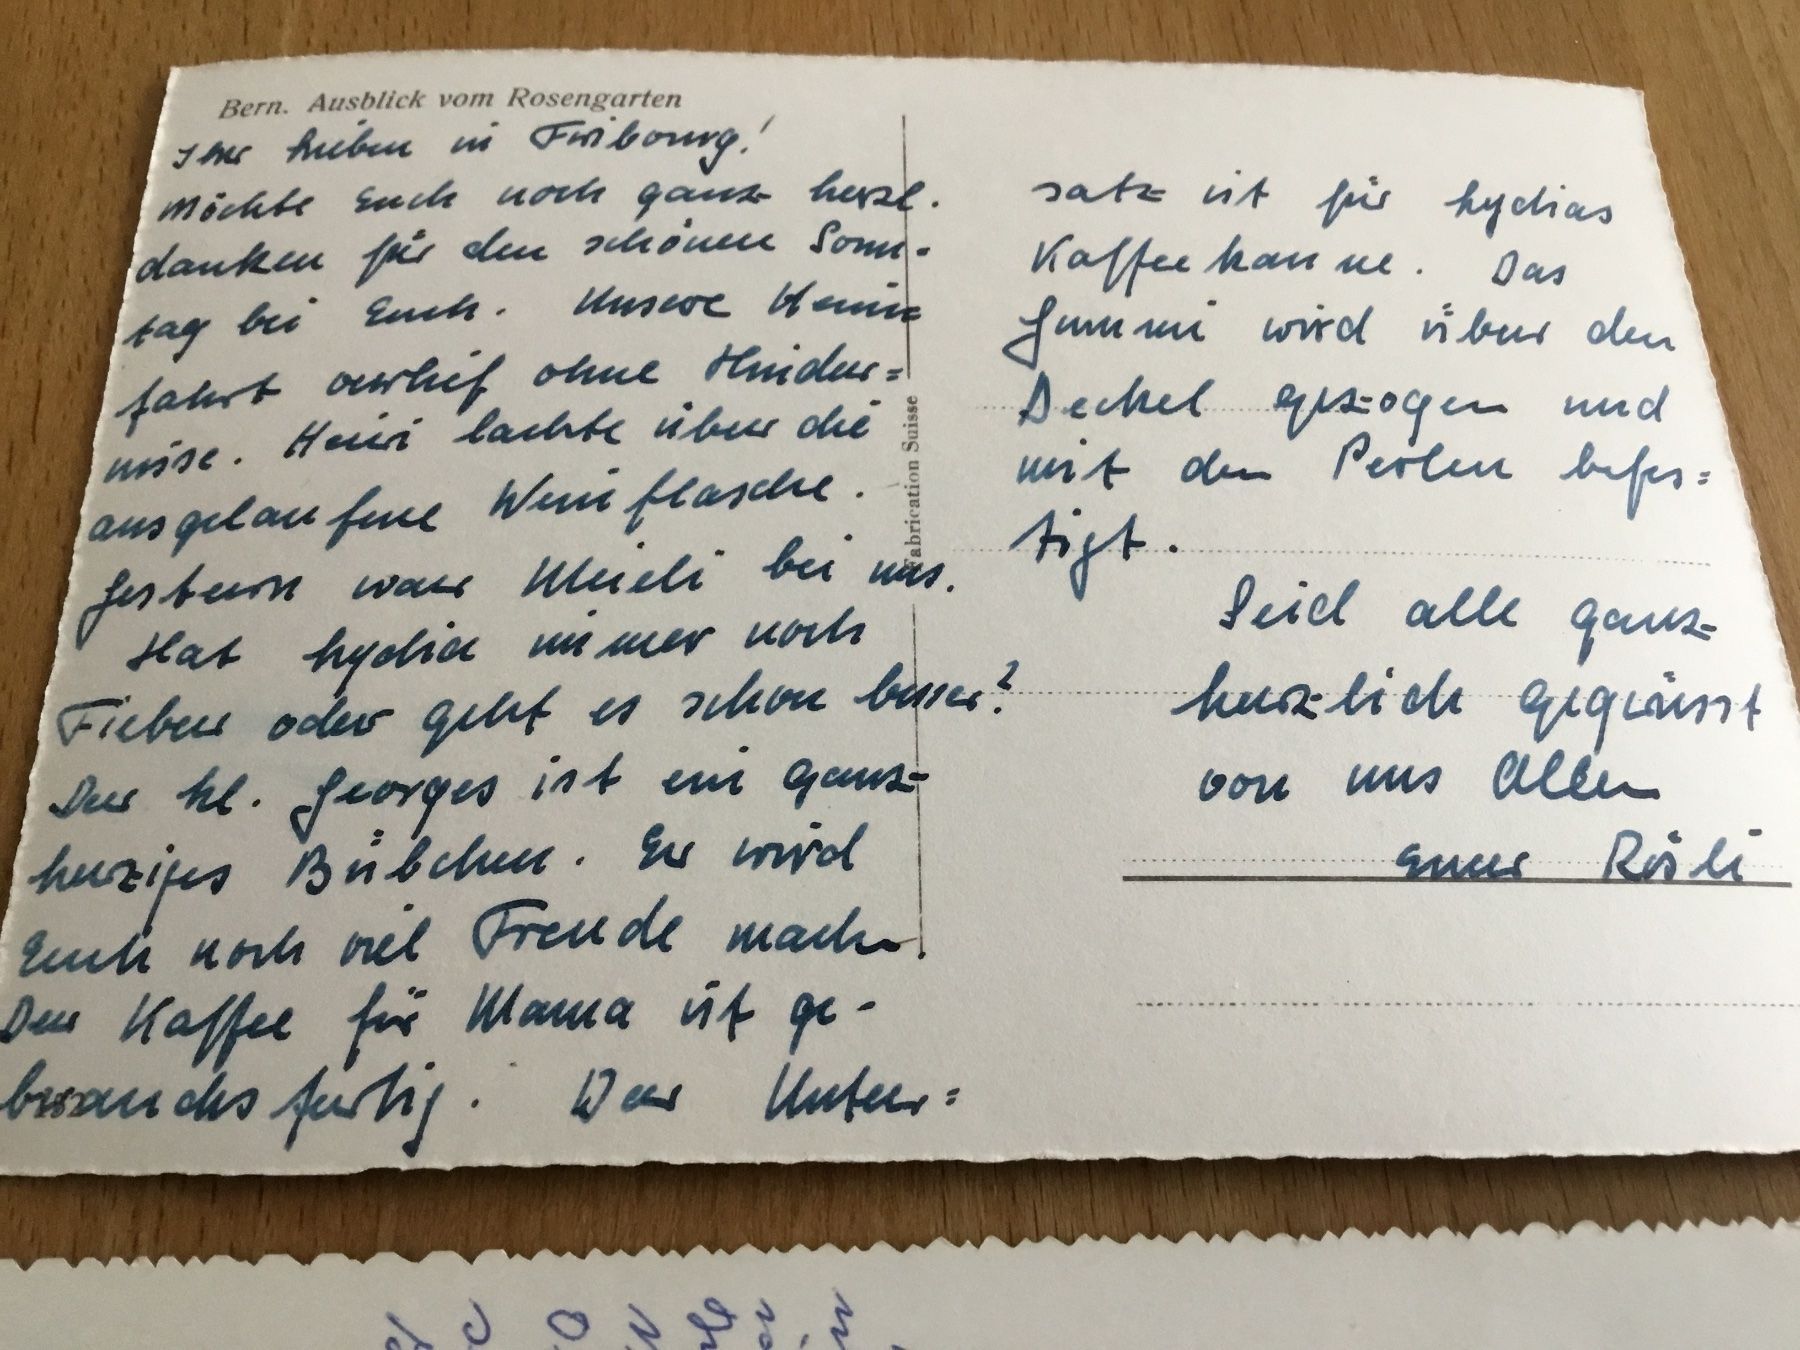 Bern. Ausblick vom Rosengarten
Ihr Lieben in Fribourg!
Möchte Euch noch ganz herzl.
danken für den schönen Sonn-
tag bei Euch. Unsere Heim=
fahrt verlief ohne Hinder=
nisse. Heiri lachte über die
ausgelaufene Weinflasche.
Gestern war Meieli bei uns.
Hat Lydia immer noch
Fieber oder geht es schon besser?
Der kl. Georges ist ein ganz
herziges Bübchen. Er wird
Euch noch viel Freude machen.
Der Kaffee für Mama ist ge-
brauchsfertig. Der Unter=
Fabrication Suisse
satz ist für Lydias
Kaffeekanne. Das
Gummi wird über den
Deckel gezogen und
mit den Perlen befes=
tigt.
Seid alle ganz
herzlich gegrüsst
von uns Allen
Euer Rösli